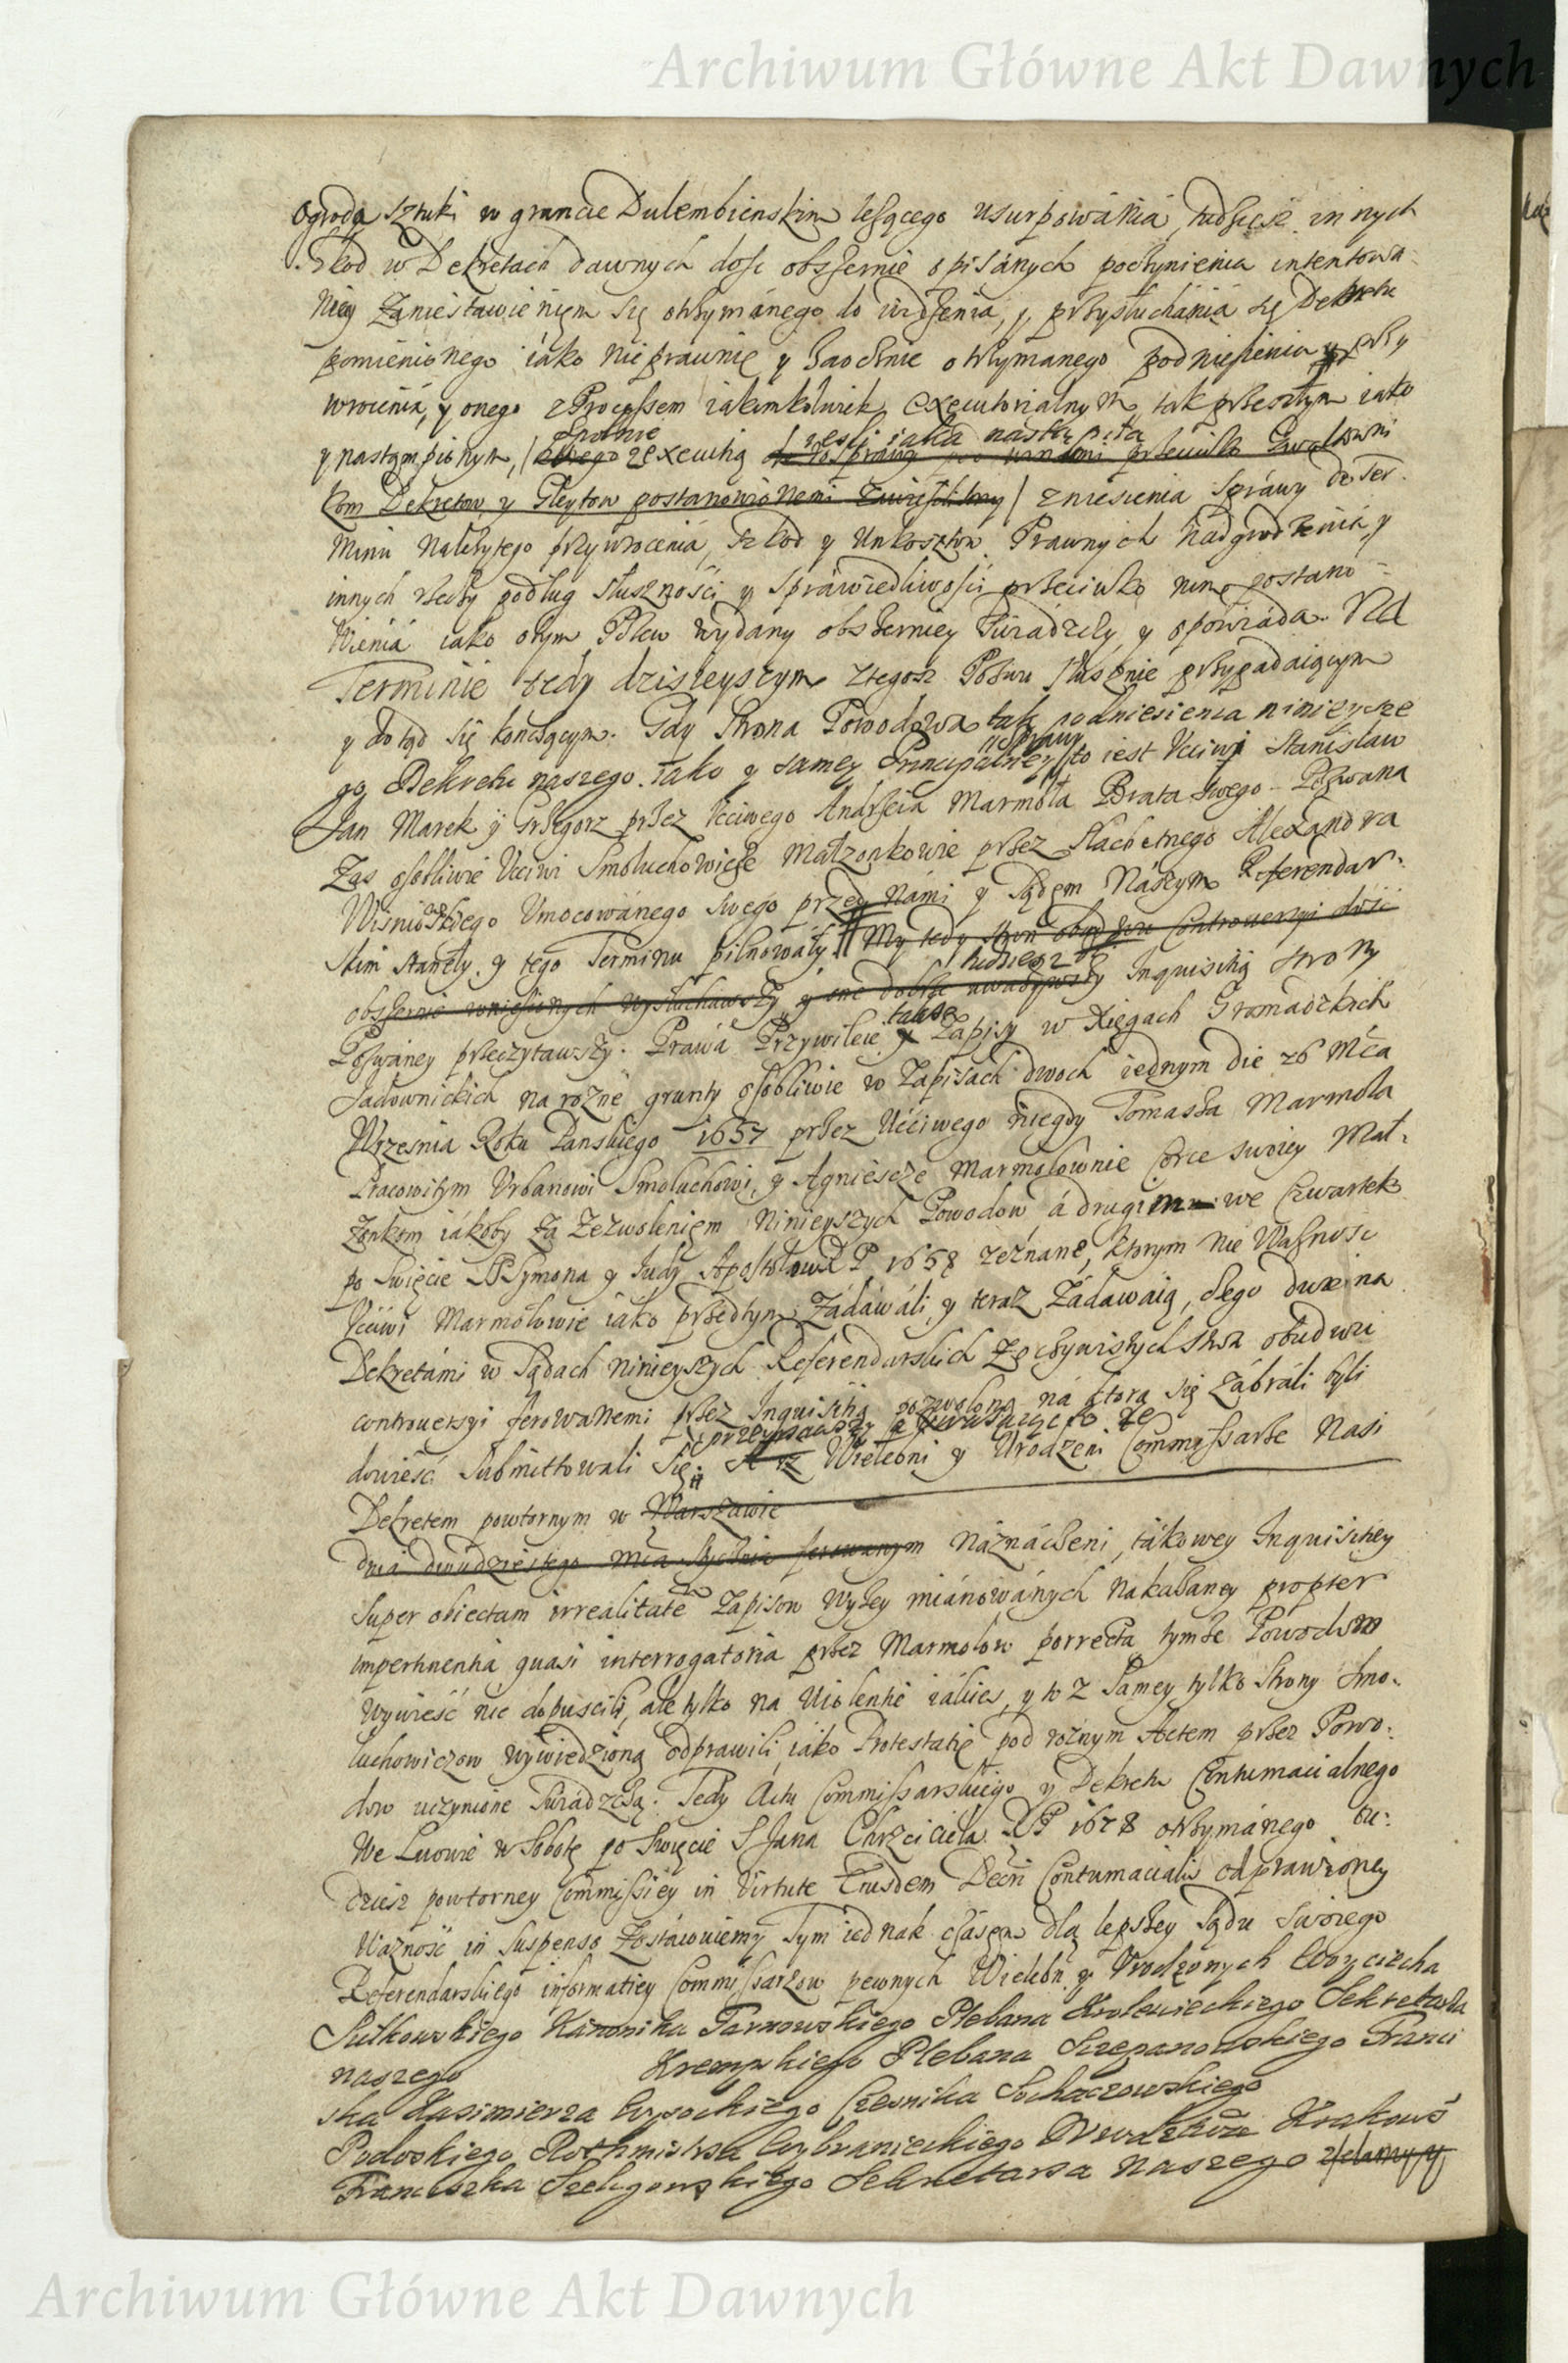 Archiwum Główne Akt Dawnych
Ogroda sztuki w gruncie Dulembienskim lezącego usurpowánia, tudziesz innych
Szkod w Dekretach dawnych dosc obszernie opisánych poczynienia intentowa-
ney Zaniestawieniem się otrzymánego do widzenia, y przysłuchánia się Dekretu
pomienionego iáko nieprawnie y zaocznie otrzymanego podniesienia y przy
wrocenia, y onego z Processem iakimkolwiek executorialnym, tak przeszłym iako
y nastąmpionym, zexecutią iesli iaka nastąpiła
kom Dekretow y Gleytow postanowionemi / zniesienia Sprawy do Ter-
minu Nalezytego przywrocenia, szkod y Unkosztow Prawnych Nadgrodzenia, y
innych rzeczy podług słuszności y sprawiedliwości przeciwko nim postano-
wienia iako otym Pozew wydány obszerniey swiadczy y opowiada. Na
Terminie tedy dzisieyszym ztegosz Pozwu słusznie przypadaiącym
y dotąd się kończącym. Gdy Strona Powodowa tak podniesienia ninieysze
go Dekretu naszego. iako y samey Principalney sprawy to iest Ucciwi Stanisław
Jan Marek y Grzegorz przez Ucciwego Andrzeia Marmoła Brata swego Pozwana
Zas osobliwie Ucciwi Smoluchowicze Małzonkowie przez Slachetnego Alexandra
Wisniowskiego Umocowánego swego przed Námi y Sądem Nászym Referendar-
skim stanęły, y tego Terminu pilnowáły My tedy stron obudwu Controwersyi dość
obszernie wniesionych wysłuchawszy, y one dobrze uwazywszy tudziesz Inquisitią strony
Pozwáney przeczytawszy. Prawa Przywileie także Zapisy w Xięgach Gromadzkich
Sadownickich na rozne grunty osobliwie w Zapisach dwoch iednym die 26 Mca
Wrzesnia Roku Panskiego 1657 przez Ucciwego niegdy Tomasza Marmoła
Pracowitym Urbanowi Smoluchowi, y Agnieszce Marmołownie Corce swoiey Mał-
zonkom iakoby za Zezwoleniem Ninieyszych Powodow á drugim we Czwartek
po Swięcie SS Symona y Judy Apostołow R P 1658 zeznane, ktorym nie Wasnosc
Ucciwi Marmołowie iáko przedtym Zádáwáli, y teraz Zádawaią, czego dwiema
Dekretámi w Sądach ninieyszych Referendarskich Zoczywistych stron obudwu
controwersyi ferowanemi przez Inquisitią pozwoloną ná ktorą się Zábráli byli
dowieść Submittowali się. Wielebni y Urodzeni Commissarze Nasi
Dekretem powtornym w Warszawie
dnia dwudziestego Mca Stycznia ferowanym Náznáczeni, tákowey Inquisitiey
super obiectam irrealitatem Zapisow wyżey miánowánych nakazaney propter
impertinentia quasi interrogatoria przez Marmołow porrecta tymze Powodom
Wywieść nie dopuscili, ale tylko na Violentie iákies, y to z samey tylko Strony Smo-
luchowiczow wywiedzioną odprawili, iáko Protestatie pod roznym Actem przez Powo-
dow uczynione swiadczą. Tedy Actu Commissarskiego y Dekretu Contumacialnego
We Lwowie w Sobotę po Swięcie S Jana Chrzciciela R P 1678 otrzymánego tu-
dziesz powtorney Commissiey in Virtute Eiusdem Decri Contumacialis odprawioney
Waznosc in suspenso Zostáwuiemy Tym iednak czásem dla lepszey Sądu Swoiego
Referendarskiego informatiey Commissarzow pewnych Wielebn. y Urodzonych Woyciecha
Sułkowskiego Kanonika Tarnowskiego Plebana Krolewieckiego Sekretarza
naszego Krempskiego Plebana Szczepanowskiego Franci
ska Kazimierza Wysockiego Czesnika Sochaczowskiego
Podoskiego Rothmistrza Wybranieckiego Krakows
Franciszka Szeligowskiego Sekretarza Naszego
Archiwum Główne Akt Dawnych